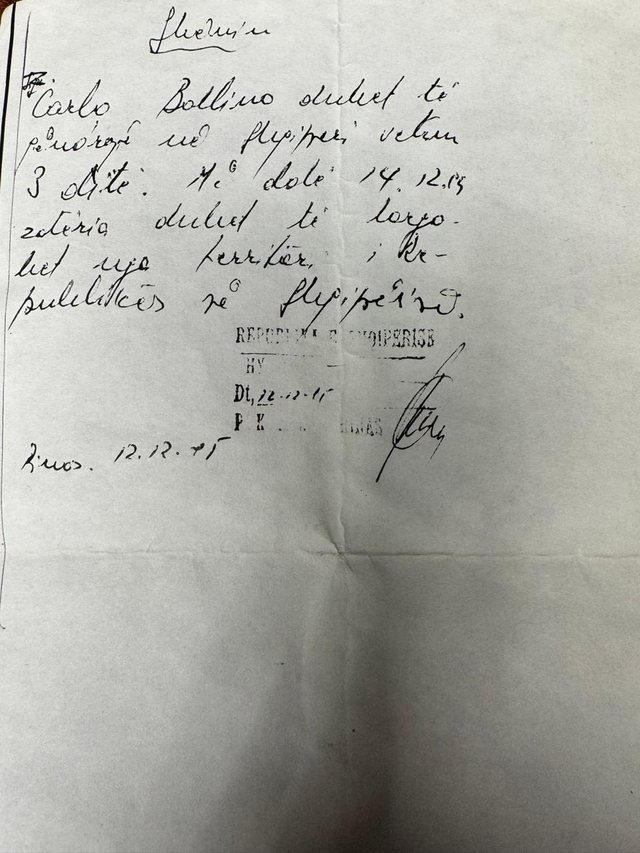 Shënim
Carlo Bollino duhet të
qëndrojë në Shqiperi vetem
3 ditë. Më datë 14.12.95
zotëria duhet të largo-
het nga territori i Re-
publikës së Shqipërisë.
REPUBLIKA E SHQIPERISE
HY
Dt, 12-12-95
P K RINAS
Rinas. 12.12.95